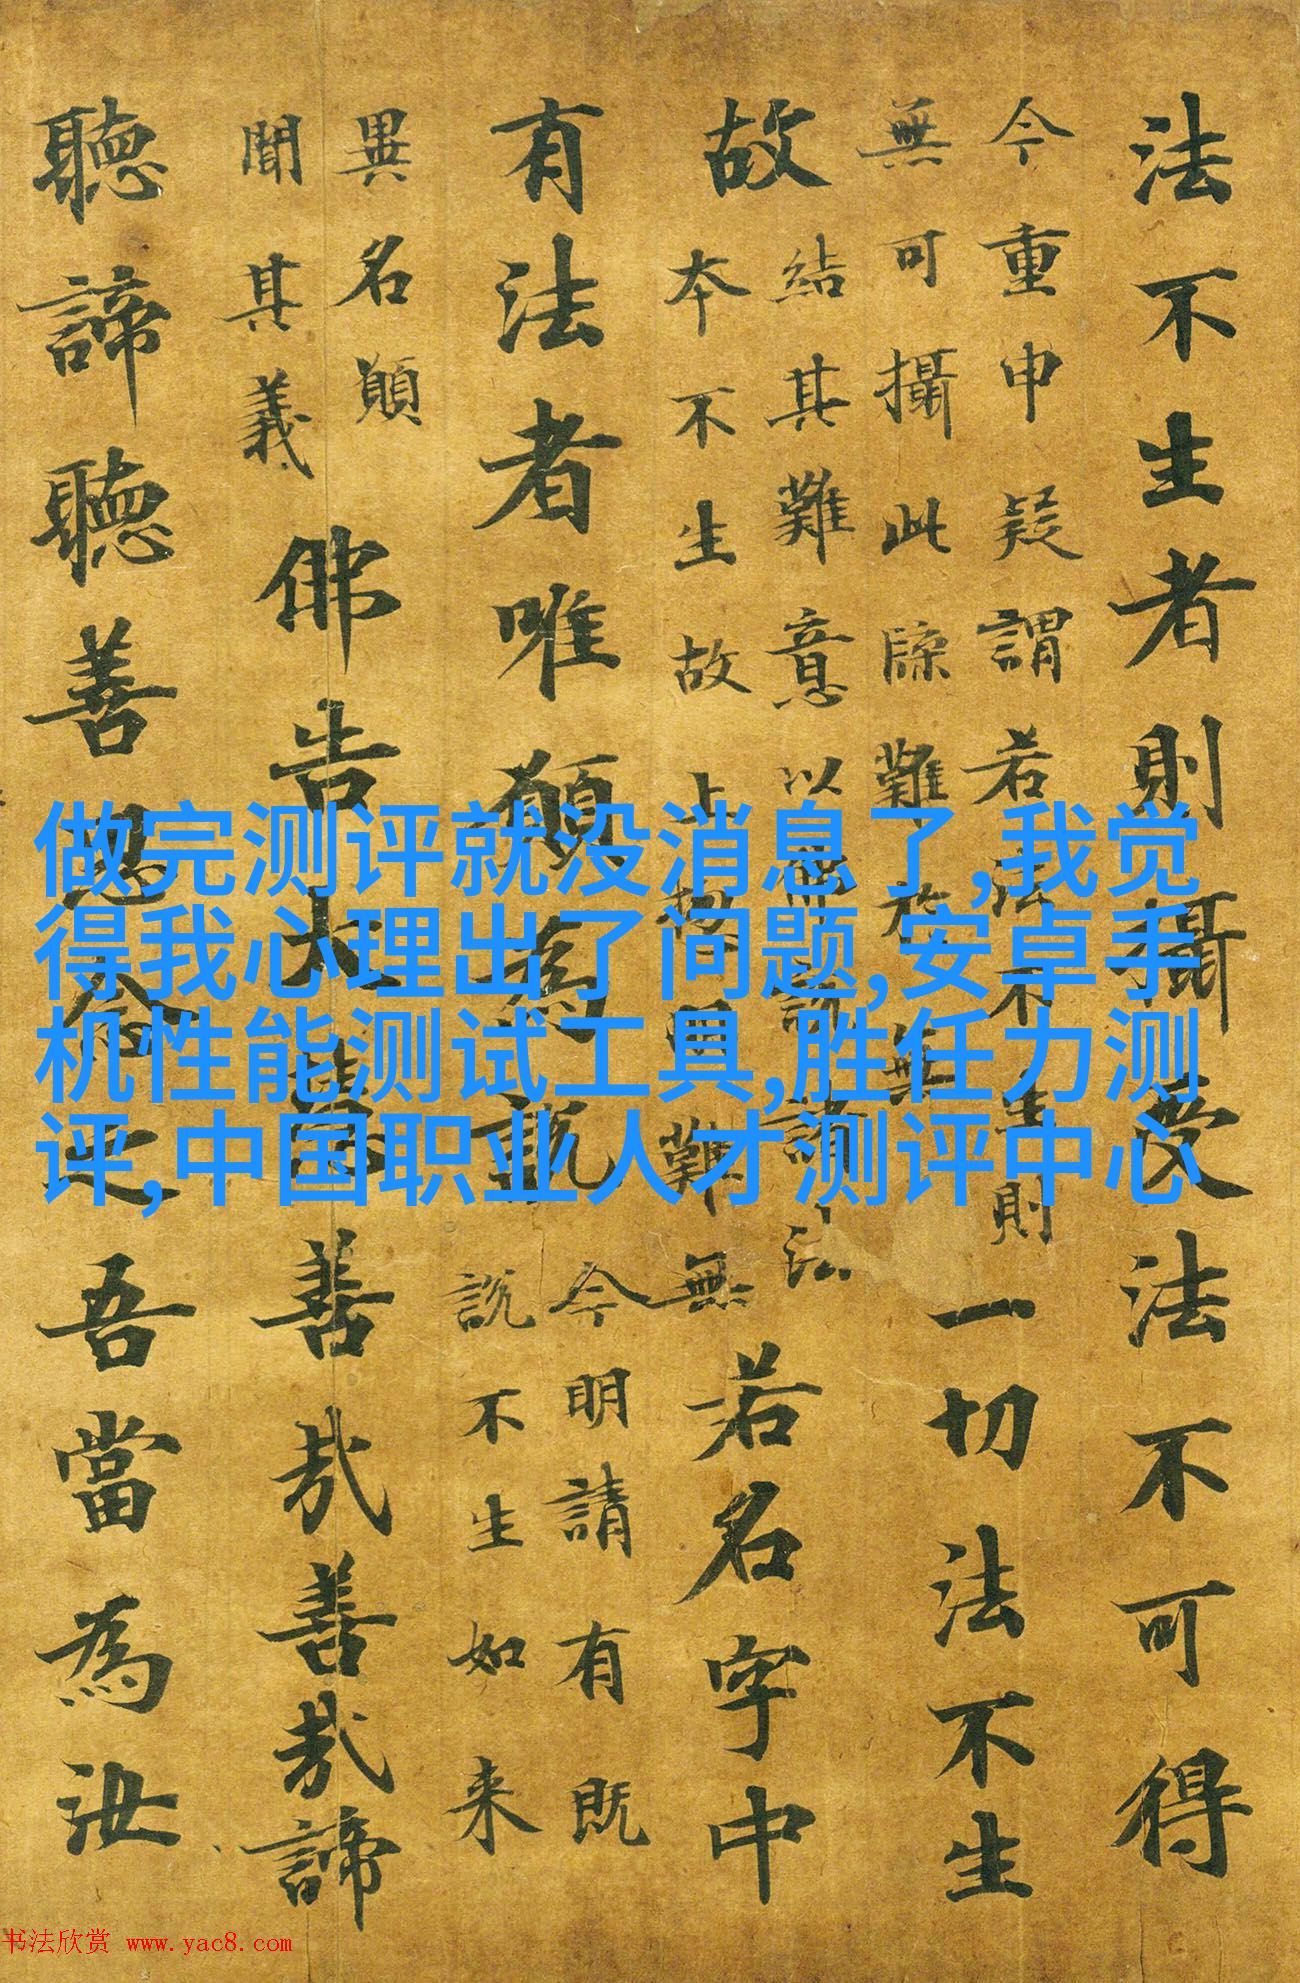 法不生者則攝受法不可得
今重申疑謂若法不生則
無可攝此牒難無
一切法不生
故
結其難意以佛說諸法
本不生故上難無
若名字中
有法者唯願為說
今明請有既
說不生如来
異名願
聞其義
佛告大慧善哉善哉諦
聽諦聽善思念之吾當為汝
做完测评就没消息了,我觉
得我心理出了问题,安卓手
机性能测试工具,胜任力测
评,中国职业人才测评中心
书法欣赏 www.yac8.com